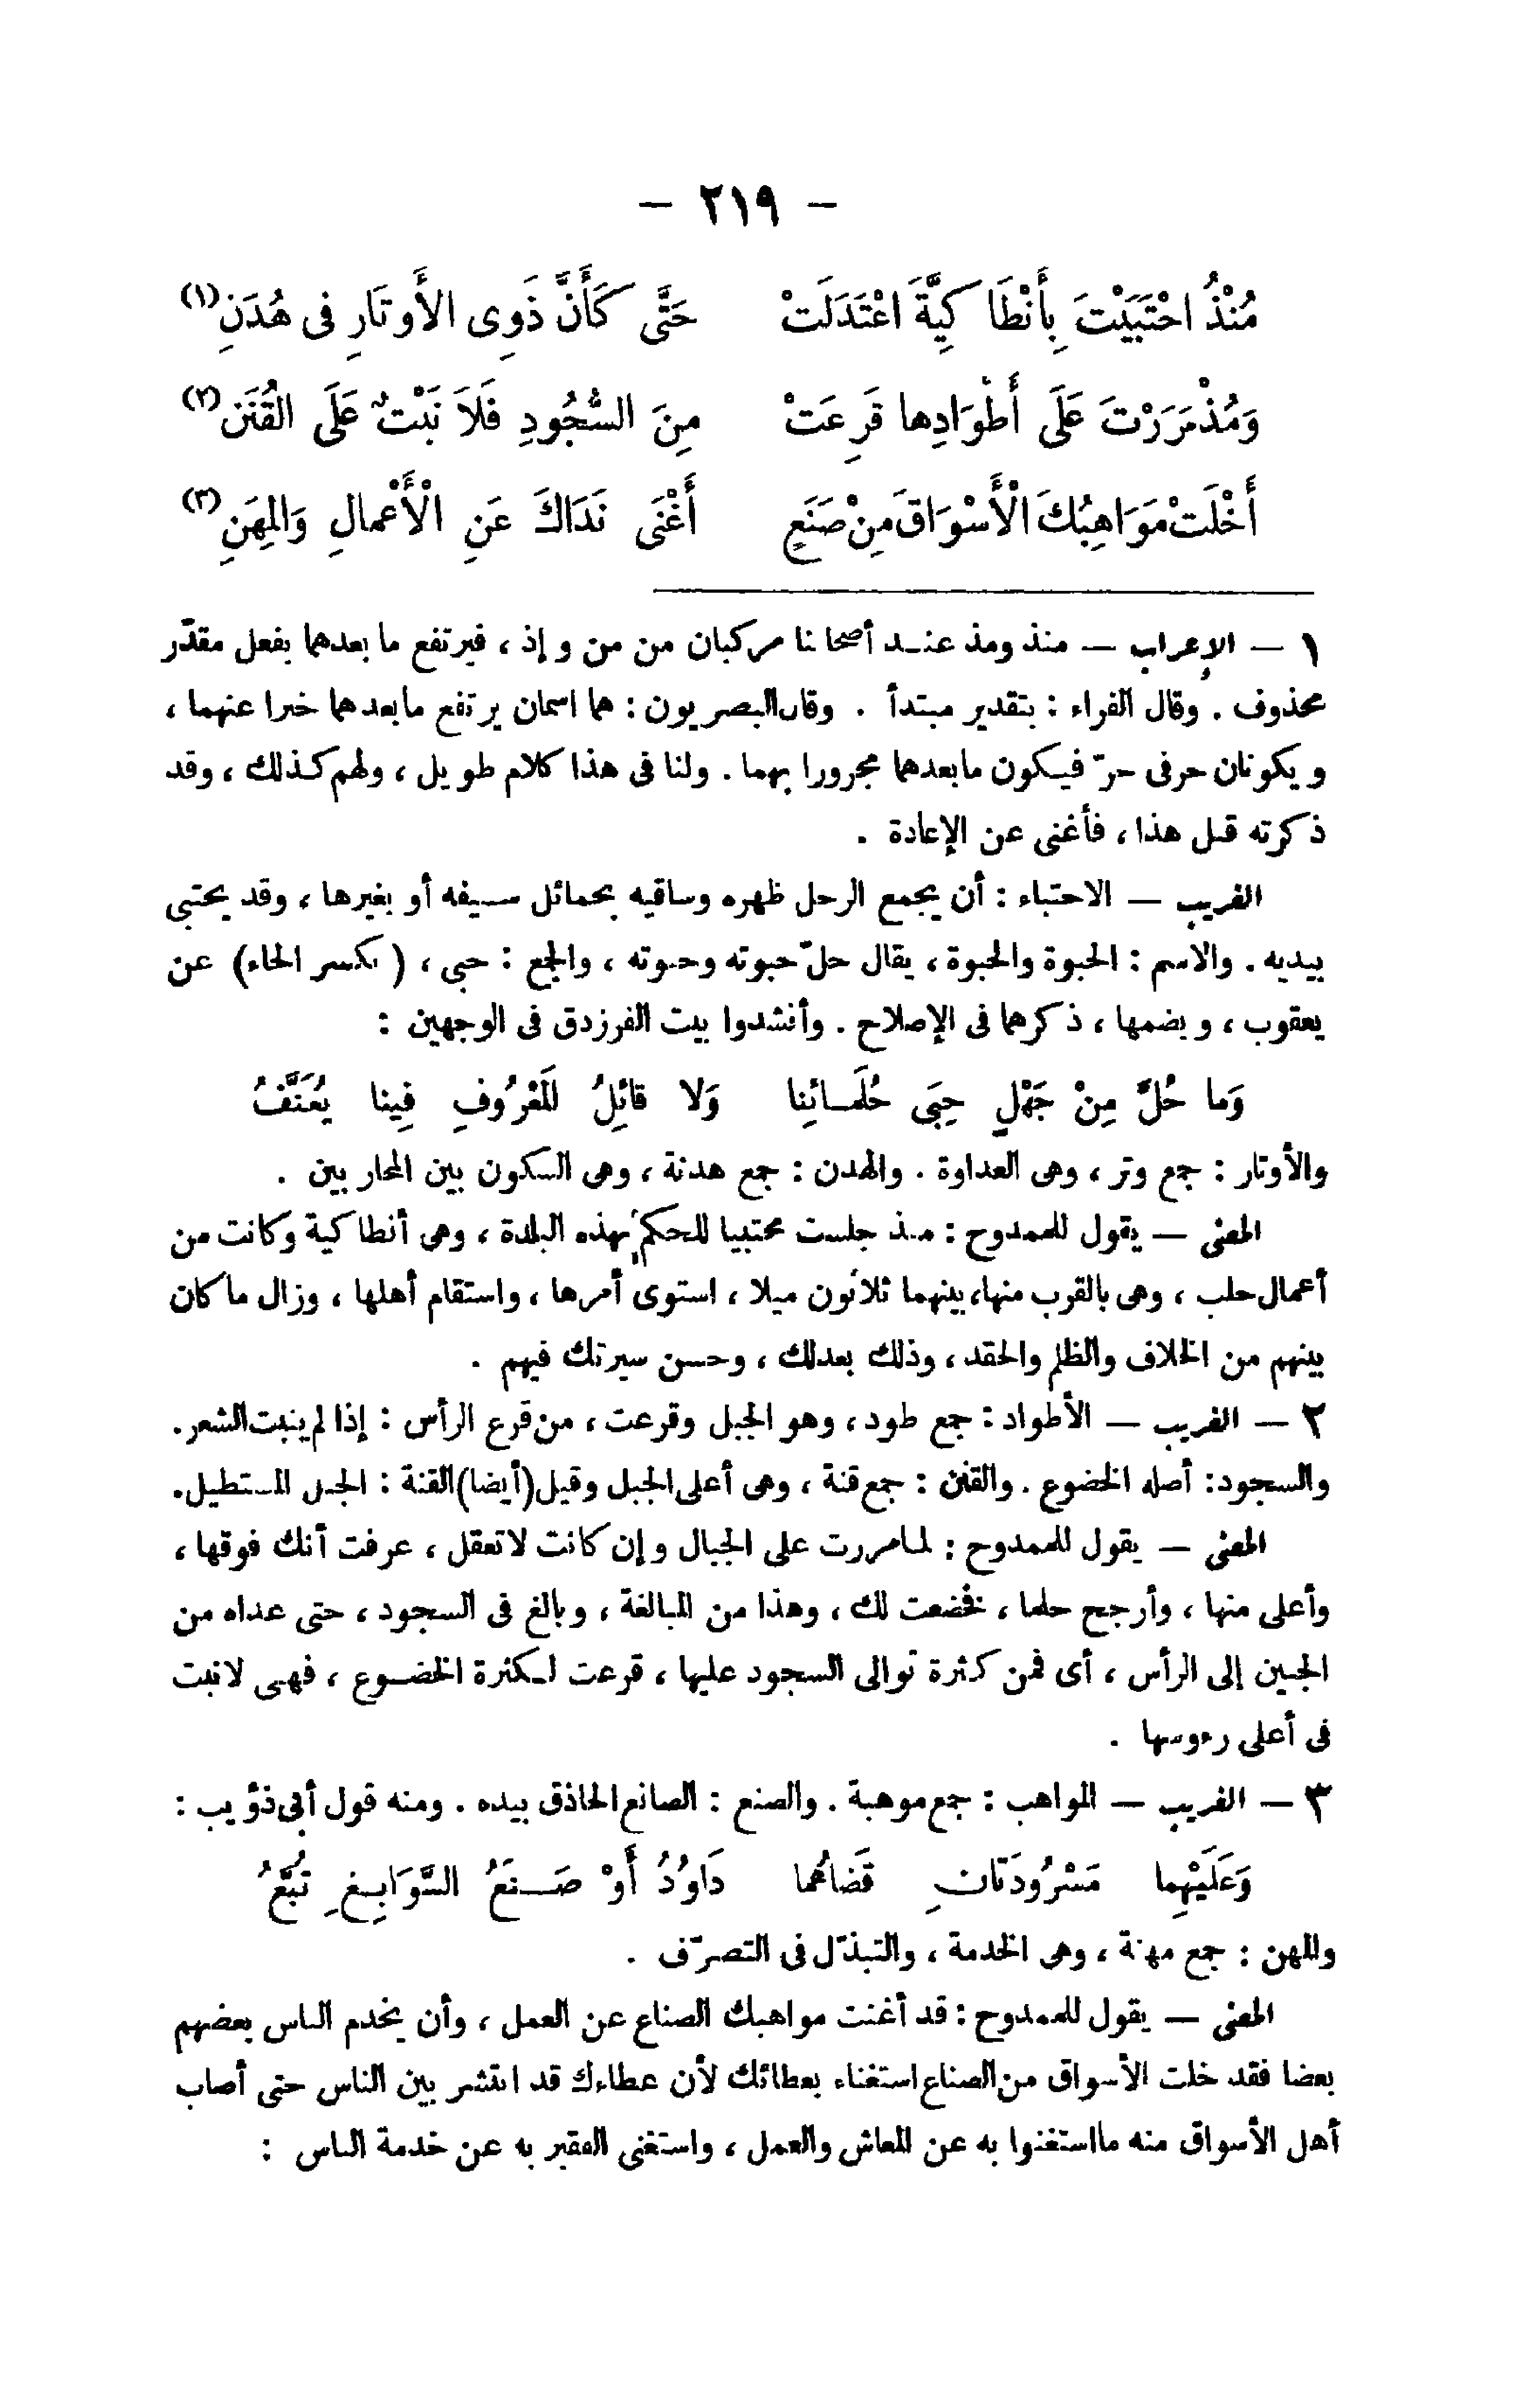 — ٢١٩ —
مُنْذُ احْتَبَيْتَ بِأَنْطَاكِيَّةَ اعْتَدَلَتْ حَتَّى كَأَنَّ ذَوِى الأَوتَارِ فى هُدَنِ (١)
وَمُذْ مَرَرْتَ عَلَى أَطْوَادِها قَرِعَتْ مِنَ السُّجُودِ فَلاَ نَبْتٌ عَلَى القُنَنِ (٢)
أَخْلَتْ مَوَاهِبُكَ الْأَسْوَاقَ مِنْ صَنَعٍ أَغْنَى نَدَاكَ عَنِ الْأَعْمالِ وَالمِهَنِ (٣)
١ — الإعراب — منذ ومذ عند أصحابنا مركبان من من وإذ ، فيرتفع ما بعدهما بفعل مقدّر
محذوف . وقال الفراء : بتقدير مبتدأ . وقال البصريون : هما اسمان يرتفع مابعدهما خبرا عنهما ،
ويكونان حرفى جرّ فيكون مابعدهما مجرورا بهما . ولنا فى هذا كلام طويل ، ولهم كذلك ، وقد
ذكرته قبل هذا ، فأغنى عن الإعادة .
الغريب — الاحتباء : أن يجمع الرجل ظهره وساقيه بحمائل سيفه أو بغيرها ، وقد يحتبى
بيديه . والاسم : الحبوة والحبوة ، يقال حلّ حبوته وحبوته ، والجمع : حبى ، ( بكسر الحاء) عن
يعقوب ، وبضمها ، ذكرهما فى الإصلاح . وأنشدوا بيت الفرزدق فى الوجهين :
وَما حُلَّ مِنْ جَهْلٍ حِبَى حُلَمائِنا وَلا قائِلُ المَعْرُوفِ فِينا يُعَنَّفُ
والأوتار : جمع وتر ، وهى العداوة . والهدن : جمع هدنة ، وهى السكون بين المحاربين .
المعنى — يقول للممدوح : مذ جلست محتبيا للحكم بهذه البلدة ، وهى أنطاكية وكانت من
أعمال حلب ، وهى بالقرب منها، بينهما ثلاثون ميلا ، استوى أمرها ، واستقام أهلها ، وزال ما كان
بينهم من الخلاف والظلم والحقد ، وذلك بعدلك ، وحسن سيرتك فيهم .
٢ — الغريب — الأطواد : جمع طود ، وهو الجبل وقرعت ، من قرع الرأس : إذا لم ينبت الشعر .
والسجود : أصله الخضوع . والقنن : جمع قنة ، وهى أعلى الجبل وقيل (أيضا) القنة : الجبل المستطيل .
المعنى — يقول للممدوح : لما مررت على الجبال وإن كانت لاتعقل ، عرفت أنك فوقها ،
وأعلى منها ، وأرجح حلما ، فخضعت لك ، وهذا من المبالغة ، وبالغ فى السجود ، حتى عداه من
الجبين إلى الرأس ، أى فمن كثرة توالى السجود عليها ، قرعت لكثرة الخضوع ، فهى لانبت
فى أعلى رءوسها .
٣ — الغريب — المواهب : جمع موهبة . والصنع : الصانع الحاذق بيده . ومنه قول أبى ذؤيب :
وَعَلَيْهِما مَسْرُودَتَانِ قَضاهُما دَاوُدُ أَوْ صَنَعُ السَّوَابِغِ تُبَّعُ
والمهن : جمع مهنة ، وهى الخدمة ، والتبذّل فى التصرّف .
المعنى — يقول للممدوح : قد أغنت مواهبك الصناع عن العمل ، وأن يخدم الناس بعضهم
بعضا فقد خلت الأسواق من الصناع استغناء بعطائك لأن عطاءك قد انتشر بين الناس حتى أصاب
أهل الأسواق منه مااستغنوا به عن المعاش والعمل ، واستغنى الفقير به عن خدمة الناس :